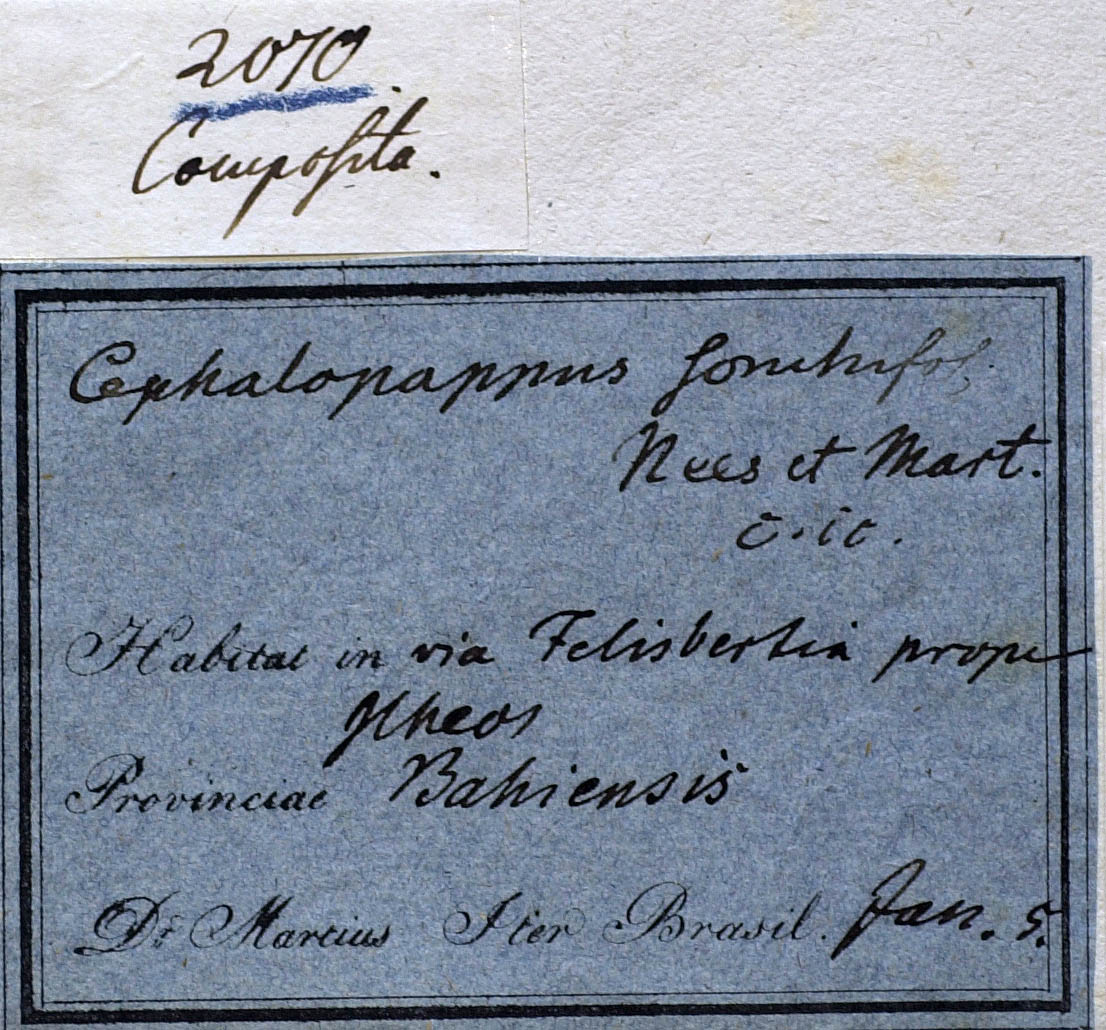 2070
Composita.
Cephalopappus sonchifol.
Nees et Mart.
c. ic.
Habitat in via Felisbertia prope
Ilheos
Provinciae Bahiensis
Dr. Martius Iter Brasil. Jan. 5.